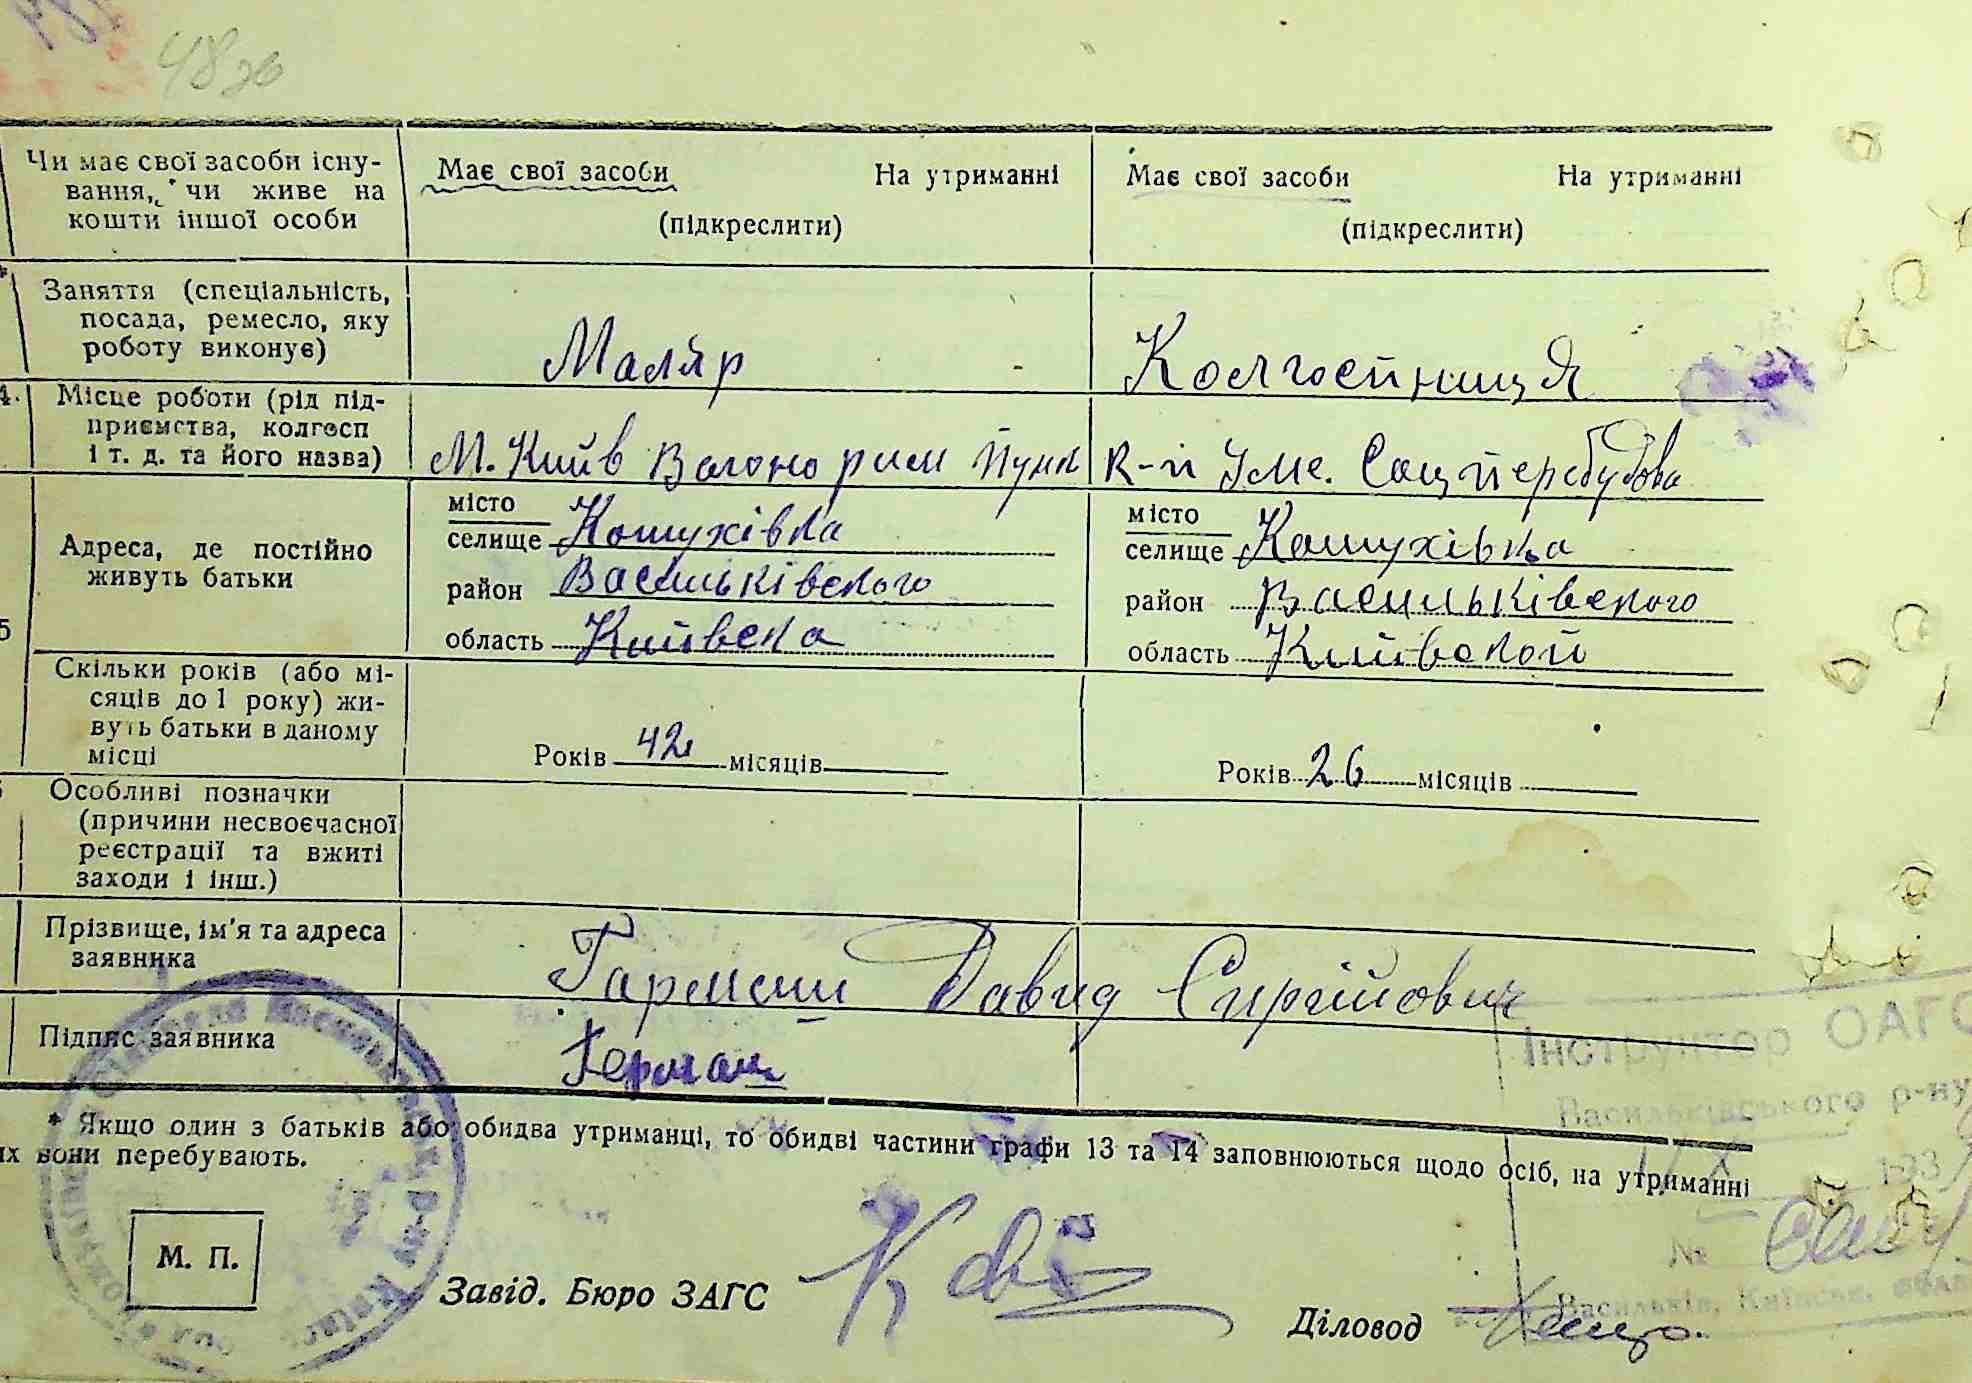 48зв
Чи має свої засоби існу-
вання, чи живе на
кошти іншої особи
Має свої засоби На утриманні
(підкреслити)
Має свої засоби На утриманні
(підкреслити)
Заняття (спеціальність,
посада, ремесло, яку
роботу виконує)
Маляр
Колгоспниця
4. Місце роботи (рід під-
приємства, колгосп
і т. д. та його назва)
М. Київ Вагоно рем Пунк
к-п Уме. Соцперебудова
5
Адреса, де постійно
живуть батьки
місто
селище Кошухівка
район Васильківського
область Київска
місто
селище Кошухівка
район Васильківského
область Київской
Скільки років (або мі-
сяців до 1 року) жи-
вуть батьки в даному
місці
Років 42 місяців
Років 26 місяців
Особливі позначки
(причини несвоєчасної
реєстрації та вжиті
заходи і інш.)
Прізвище, ім'я та адреса
заявника
Гармаш Давид Сиргійович
Підпис заявника
Гермаш
* Якщо один з батьків або обидва утриманці, то обидві частини графи 13 та 14 заповнюються щодо осіб, на утриманні
их вони перебувають.
М. П.
Завід. Бюро ЗАГС
Діловод
Інструктор ОАГС
Васильківського р-ну
193
№
Васильків, Київськ.